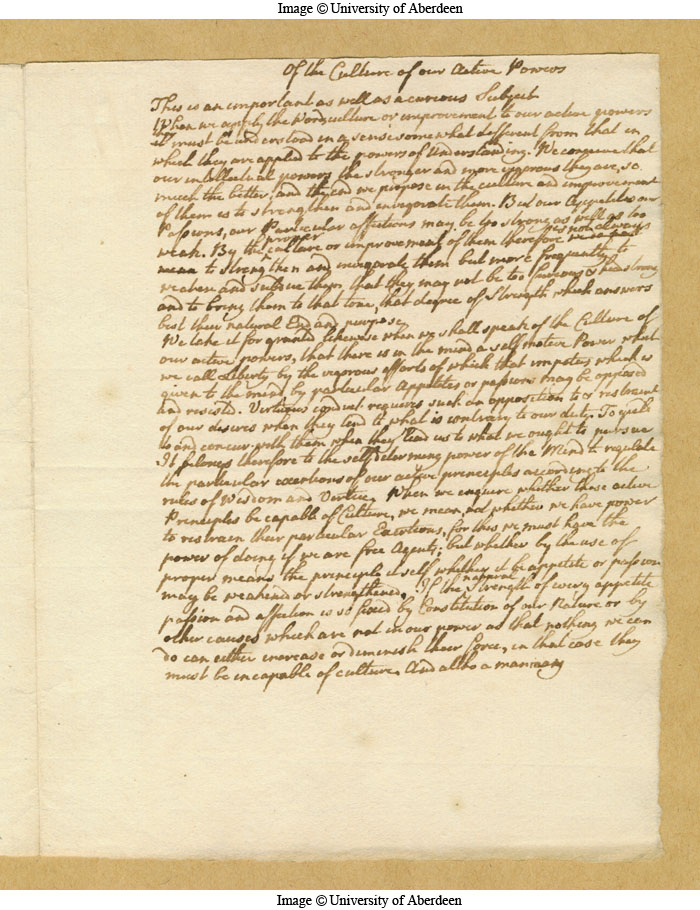 Image © University of Aberdeen
Of the Culture of our Active Powers
This is an important as well as a curious Subject
When we apply the Word culture or improvement to our active powers
it must be understood in a sense somewhat different from that in
which they are applied to the powers of Understanding. We conceive that
our intellectual powers the stronger and more vigorous they are, so
much the better, and the end we propose in the culture and improvement
of them is to strengthen and invigorate them. But our Appetites our
Passions, our Particular affections may be too strong as well as too
weak. By the proper culture or improvement of them therefore we do not always
mean to strengthen and invigorate them but more frequently to
weaken and subdue them, that they may not be too furious &
and to bring them to that tone, that degree of Strength which answers
best their natural End and purpose
We take it for granted likewise when we shall speak of the Culture of
our active powers, that there is in the mind a self motive Power what
we call Liberty by the vigorous efforts of which that impetus which is
given to the mind by particular Appetites or passions may be opposed
and resisted. Virtuous conduct requires such an opposition to & restraint
of our desires when they tend to what is contrary to our duty. To yield
to and concur with them when they lead us to what we ought to pursue
It belongs therefore to the self determing power of the Mind to regulate
the particular exertions of our active principles according to the
rules of Wisdom and Vertue. When we enquire whether these active
Principles be capable of Culture, we mean not whether we have power
to restrain their particular Exertions, for this we must have the
power of doing if we are free Agents; but whether by the use of
proper means the principle itself whether it be appetite or passion
may be weakend or strengthened. If the natural Strength of every appetite
passion and affection is so fixed by Constitution of our Nature or by
other causes which are not in our power as that nothing we can
do can either increase or diminish their force, in that case they
must be incapable of culture. And altho a man may
Image © University of Aberdeen